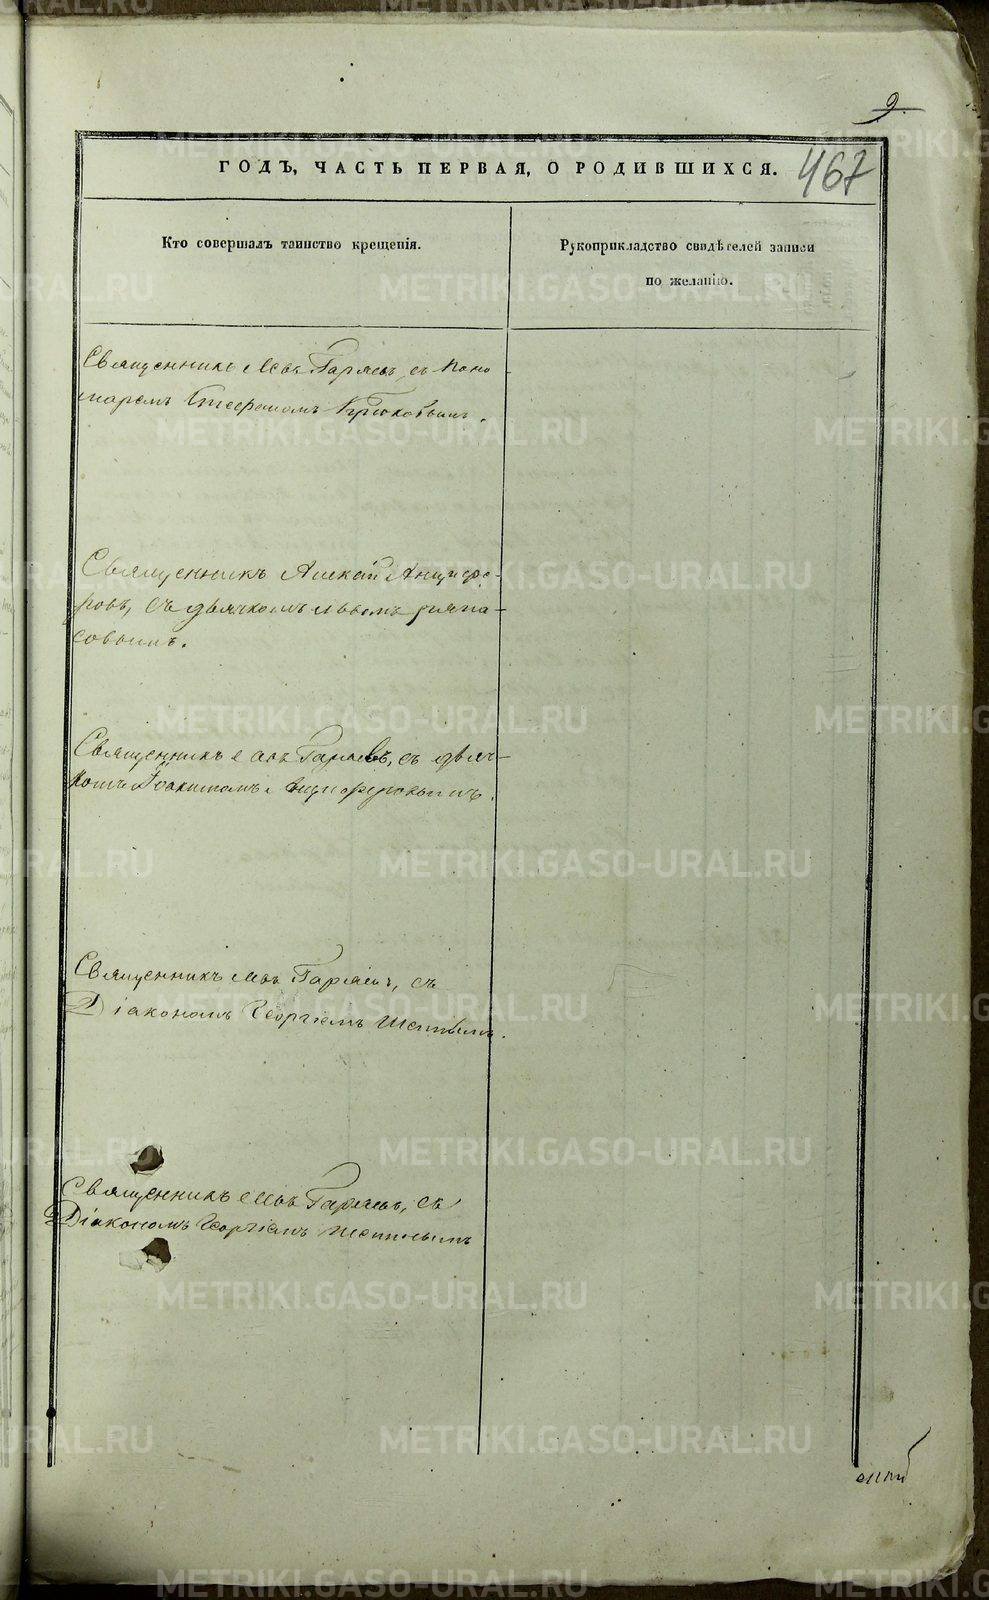 9.
467
ГОДЪ, ЧАСТЬ ПЕРВАЯ, О РОДИВШИХСЯ.
Кто совершалъ таинство крещенія.
Рукоприкладство свидѣтелей записи
по желанію.
Священникъ Левъ Гаряевъ, съ Поно
маремъ Стефаномъ Крюковымъ.
Священникъ Алексій Анциfе-
ровъ, съ дьячкомъ Львомъ
совымъ.
Священникъ Левъ Гаряевъ, съ дьяч-
комъ Іоакимомъ Анциферовымъ.
Священникъ Левъ Гаряевъ, съ
Діакономъ Георгіемъ
Священникъ Левъ Гаряевъ, съ
Діакономъ Георгіемъ
METRIKI.GASO-URAL.RU